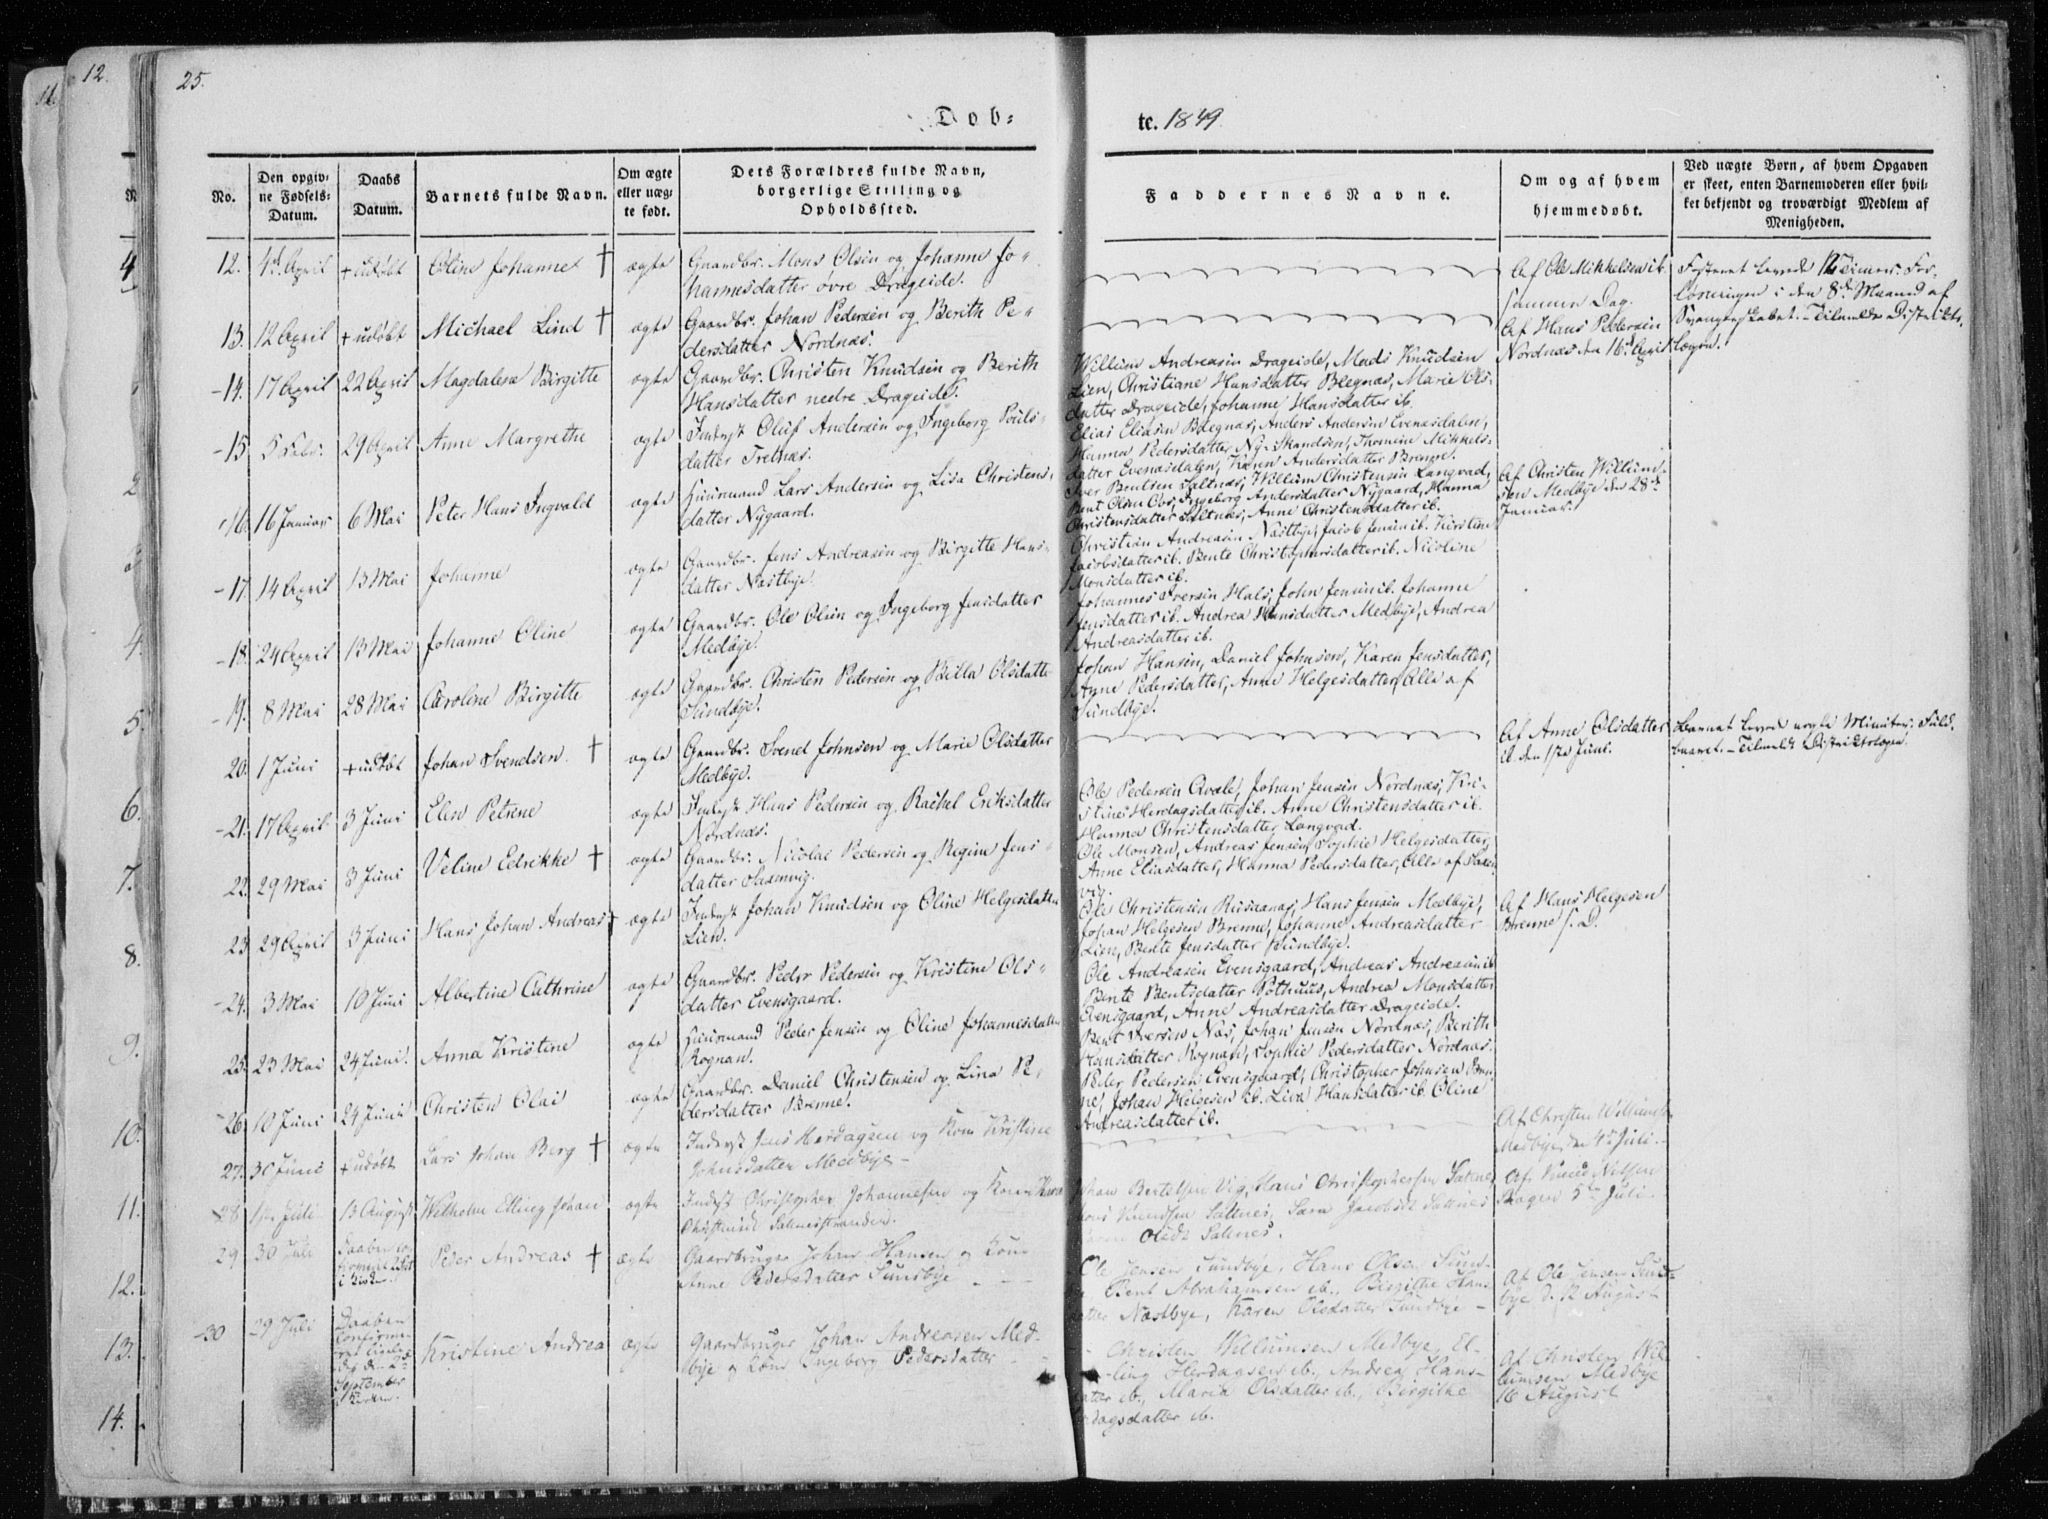 25.
12.
Døb-
te. 1849.
No.
Den opgiv-
ne Fødsels-
Datum.
Daabs
Datum.
Barnets fulde Navn.
Om ægte
eller uæg-
te født.
Dets Forældres fulde Navn,
borgerlige Stilling og
Opholdssted.
Faddernes Navne.
Om og af hvem
hjemmedøbt.
Ved uægte Børn, af hvem Opgaven
er skeet, enten Barnemoderen eller hvil-
ket bekjendt og troværdigt Medlem af
Menigheden.
12. 4d April + udøbt Oline Johanne † ægte Gaardbr. Mons Olsen og Johanne Jo-
hannesdatter øvre Drageide.
Af Ole Mikkelsen ib.
samme Dag.
Fosteret levede 12 Timer. For-
løsningen i den 8de Maaned af
Svangerskabet. - Tilmeldt Distrikts-
lægen.
13. 12 April + udøbt Michael Lind † ægte Gaardbr. Johan Pedersen og Berith Pe-
dersdatter Nordnæs.
Af Hans Pedersen
Nordnæs den 16d April
14. 17 April 22 April Magdalena Birgitte ægte Gaardbr. Christen Knudsen og Berith
Hansdatter nedre Drageide.
Willum Andreasen Drageide, Mads Knudsen
Lien, Christiane Hansdatter Bregnæs, Marie Ols-
datter Drageide, Johanne Hansdatter ib.
15. 5 Febr. 29 April Anne Margrethe ægte Inderst Oluf Andersen og Ingeborg Pouls-
datter Fretnæs.
Elias Eliasen Bregnæs, Anders Andersen Evenasdalen,
Hanna Pedersdatter Ny-Skandsen, Thomine Mikkels-
datter Evenasdalen, Karen Andersdatter Brenne.
16. 16 Januar 6 Mai Peter Hans Ingvald ægte Huusmand Lars Andersen og Lisa Christens-
datter Nygaard.
Iver Bentsen Saltnæs, Willum Christensen Langvad,
Bent Olsen Ores, Ingeborg Andersdatter Nygaard, Hanna
Christensdatter Saltnæs, Anne Christensdatter ib.
Af Christen Willum-
sen Medbye den 28de
Januar.
17. 14 April 13 Mai Johanne ægte Gaardbr. Jens Andreasen og Birgitte Hans-
datter Næstbye.
Christian Andreasen Næstbye, Jacob Jensen ib. Kirstine
Jacobsdatter ib. Bente Christophersdatter ib. Nicoline
Monsdatter ib.
18. 24 April 13 Mai Johanne Oline ægte Gaardbr. Ole Olsen og Ingeborg Jensdatter
Medbye.
Johannes Iversen Hals, John Jensen ib. Johanne
Jensdatter ib. Andrea Hansdatter Medbye, Andrea
Andreasdatter ib.
19. 8 Mai 28 Mai Caroline Birgitte ægte Gaardbr. Christen Pedersen og Bella Olsdatter
Sundbye.
Johan Hansen, Daniel Johnsen, Karen Jensdatter,
Anne Pedersdatter, Anne Helgesdatter, Alle af
Sundbye.
20. 1 Juni + udøbt Johan Svendsen. † ægte Gaardbr. Svend Johnsen og Marie Olsdatter
Medbye.
Af Anne Olsdatter
ib. den 1ste Juni.
Barnet levede nogle Minuter. Fuld-
baaret. - Tilmeldt Distriktslægen.
21. 17 April 3 Juni Elen Petrine ægte Inderst Hans Pedersen og Rachel Eriksdatter
Nordnæs.
Ole Pedersen Qvale, Johan Jensen Nordnæs, Kri-
stine Herdagsdatter ib. Anne Christensdatter ib.
Hanna Christensdatter Langvad.
22. 29 Mai 3 Juni Veline Edrikke † ægte Gaardbr. Nicolai Pedersen og Regine Jens-
datter Saxenvig.
Ole Monsen, Andreas Jensen, Sophie Helgesdatter,
Anne Eliasdatter, Hanna Pedersdatter, Alle af Saxen-
vig.
23 29 April 3 Juni Hans Johan Andreas † ægte Inderst Johan Knudsen og Oline Helgesdatter
Lien.
Ole Christensen Rusaanæs, Hans Jensen Medbye,
Johan Helgesen Brenne, Johanne Andreasdatter
Lien, Bente Jensdatter Sundbye.
Af Hans Helgesen
Brenne s. D.
24. 3 Mai 10 Juni Albertine Cathrine ægte Gaardbr. Peder Pedersen og Kristine Ols-
datter Evensgaard.
Ole Andreasen Evensgaard, Andreas Andreasen ib.
Bente Bentsdatter Pothuus, Andrea Monsdatter
Evensgaard, Anne Andreasdatter Drageide.
25. 23 Mai 24 Juni Anna Kristine ægte Huusmand Peder Jensen og Oline Johannesdatter
Rognan.
Bent Iversen Næs, Johan Jensen Nordnæs, Berith
Hansdatter Rognan, Sophie Pedersdatter Nordnæs.
26. 10 Juni 24 Juni Christen Olai ægte Gaardbr. Daniel Christensen og Lina Pe-
dersdatter Brenne.
Peder Pedersen Evensgaard, Christopher Johnsen Bren-
ne, Johan Helgesen ib. Liva Hansdatter ib. Oline
Andreasdatter ib.
27. 30 Juni + udøbt Lars Johan Berg † ægte Inderst Jens Herdagsen og Kone Kristine
Johnsdatter Medbye -
Af Christen Willumsen
Medbye den 4de Juli.
28 1ste Juli 13 August Wilhelm Elling Johan ægte Inderst Christopher Johannesen og Kone Karen
Christensd.
Johan Bertelsen Vig, Hans Christophersen Saltnes,
Knudsen Saltnes, Sara Jacobsd. Saltnes
Olsd. Saltnes.
Af Knud Nilsen
5te Juli
29 30 Juli Daaben
i Kirken Peder Andreas † ægte Gaardbruger Johan Hansen og Kone
Anne Pedersdatter Sundbye
Ole Jensen Sundbye, Hans Olsen Sund-
Bent Abrahamsen ib., Birgithe Hans
datter Næstbye, Karen Olsdatter Sundbye -
Af Ole Jensen Sund-
bye d. 12 August
30 29 Juli Daaben
Confirme-
September
Kirken Kristine Andrea ægte Gaardbruger Johan Andreasen Med-
bye og Kone Ingeborg Pedersdatter
Christen Willumsen Medbye, El-
ling Herdagsen ib., Andrea Hans-
datter ib., Maria Olsdatter ib., Birgithe
dagsdatter ib.
Af Christen Wil-
lumsen Medbye
16 August
4
2
4.
5.
6.
7.
8.
9.
10.
11.
12.
13.
14.